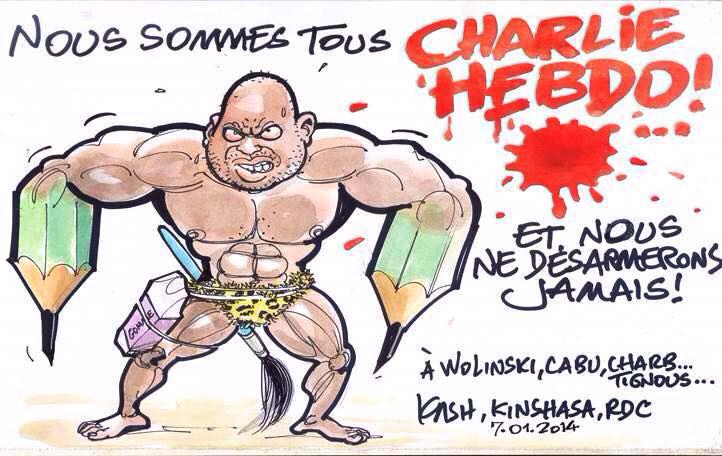 NOUS SOMMES TOUS
CHARLIE
HEBDO!
ET NOUS
NE DÉSARMERONS
JAMAIS!
À WOLINSKI, CABU, CHARB...
TIGNOUS...
KASH, KINSHASA, RDC
7.01.2014
GOMME